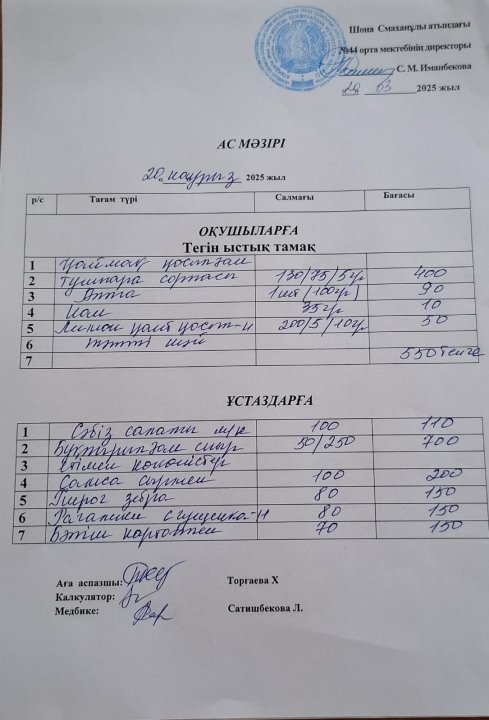 Шона Смаханұлы атындағы
№44 орта мектебінің директоры
С. М. Иманбекова
20 03 2025 жыл
АС МӘЗІРІ
20 наурыз 2025 жыл
р/с Тағам түрі Салмағы Бағасы
ОҚУШЫЛАРҒА
Тегін ыстық тамақ
1 Қаймақ қосылған
2 тушпара сорпасы 130/75/5гр 400
3 Алма 1шт (100гр) 90
4 Нан 35гр 10
5 Лимон қант қосыл-н 200/5/10гр 50
6 тәтті шәй
7 550 тенге
ҰСТАЗДАРҒА
1 Сәбіз салаты 100 110
2 Бұқтырылған сиыр 50/250 700
3 етімен
4 Самса 100 200
5 Пирог зебра 80 150
6 Рагалики сгущенка-н 80 150
7 Бәтіш картоппен 70 150
Аға аспазшы: Торғаева Х
Калкулятор:
Медбике: Сатишбекова Л.